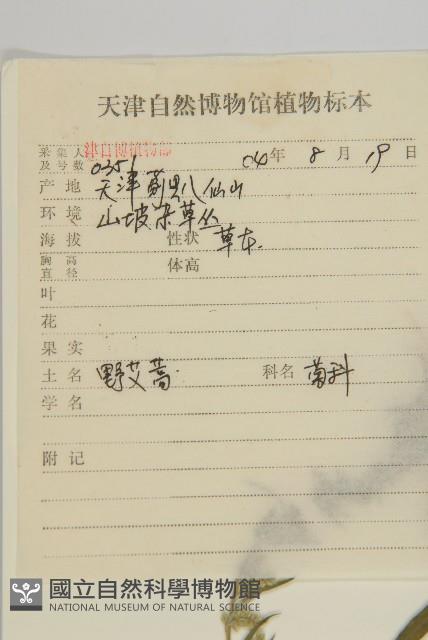 天津自然博物馆植物标本
采集人及号数 津自博植物部 0351 04年 8月 19日
产地 天津蓟县八仙山
环境 山坡杂草丛
海拔 性状 草本.
胸高直径 体高
叶
花
果实
土名 野艾蒿. 科名 菊科
学名
附记
國立自然科學博物館
NATIONAL MUSEUM OF NATURAL SCIENCE